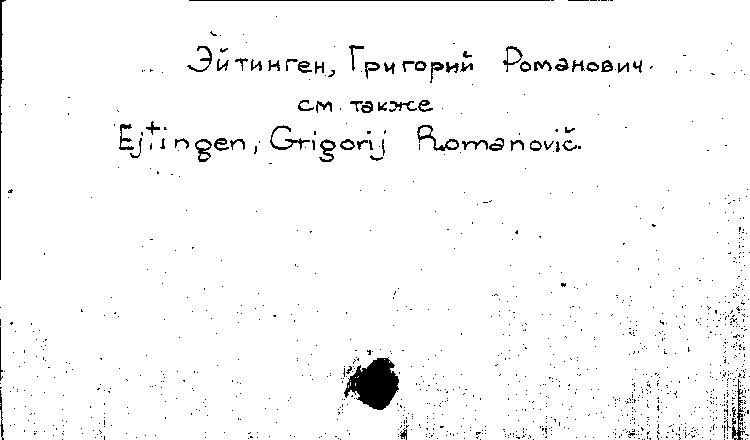 Эйтинген, Григорий Романович.
см. также
Ejtingen, Grigorij Romanovič.